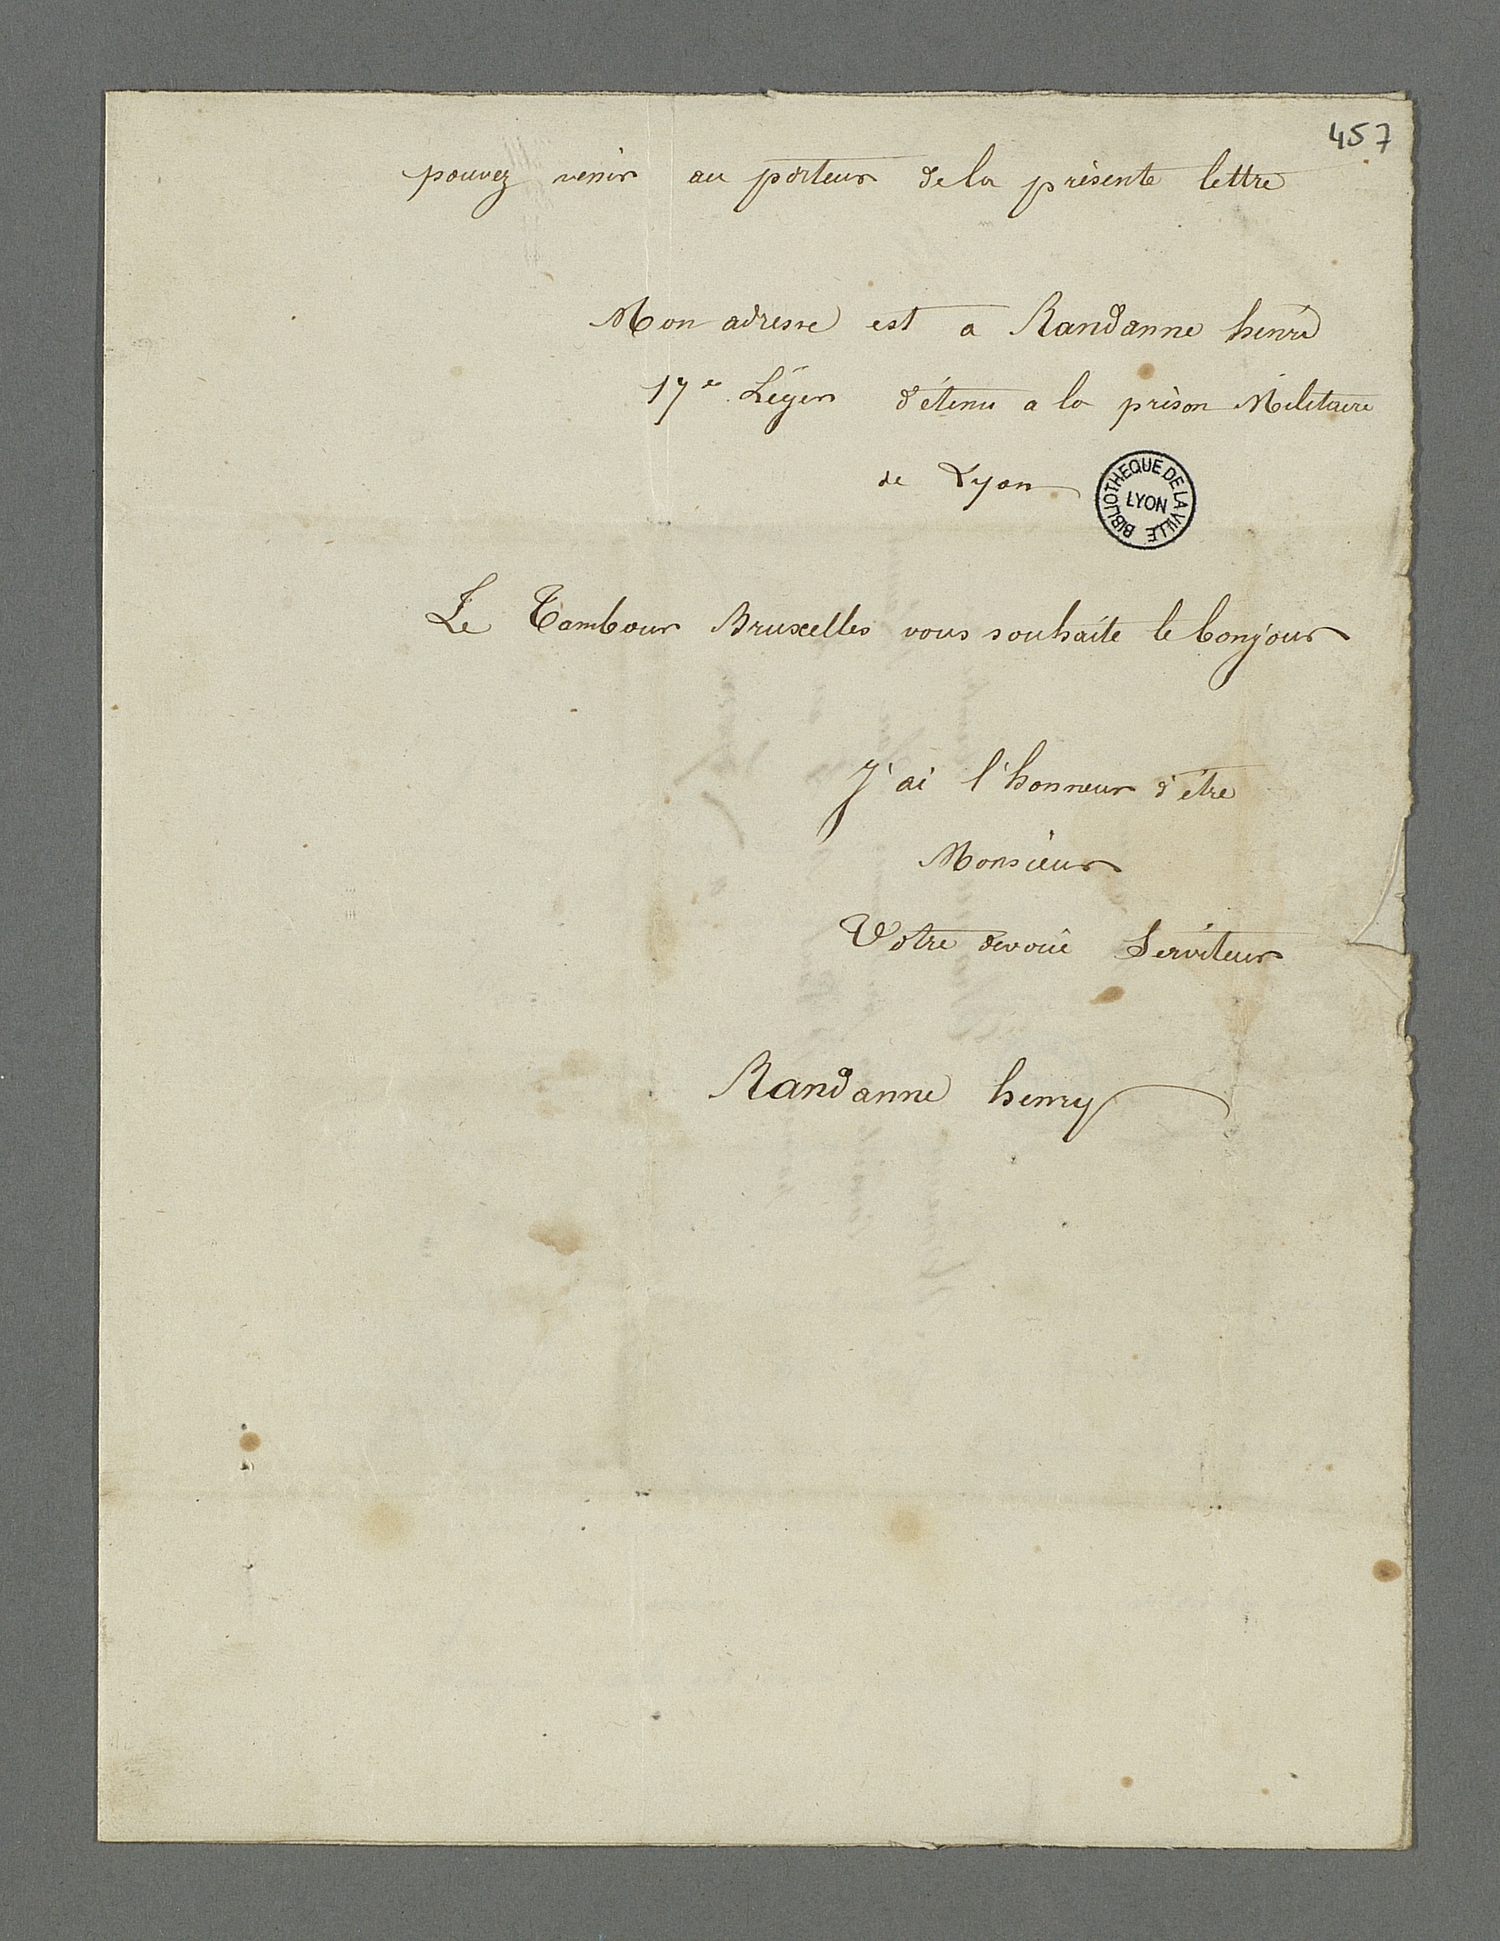 457
pouvez venir au porteur de la présente lettre
Mon adresse est a Randanne henri
17e Léger détenu a la prison Militaire
de Lyon
BIBLIOTHEQUE DE LA VILLE
LYON
Le Tambour Bruxelles vous souhaite le bonjour
J'ai l'honneur d'être
Monsieur
Votre devoué Serviteur
Randanne henry